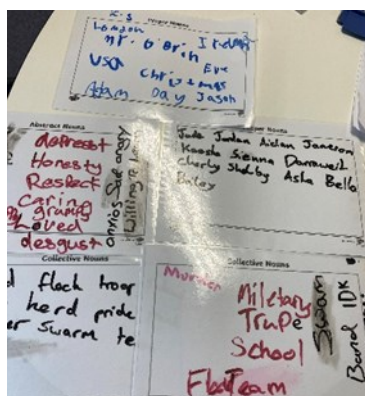 Proper Nouns
London
Mr. O'Brien Ireland
USA Eve
Christmas
Adam Day Jason
Abstract Nouns
depresst
Honesty
Respect
caring
grumpy
Loved
desgust
anxios Sad angry
Jude Jordan Aidan Jameson
Keesha Sienna
Charly Shelby Asha Bella
Bailey
Collective Nouns
flock troop
herd pride
swarm te
Collective Nouns
Murder
Miletary
Trupe
School
Team
Swarm
Band IDK